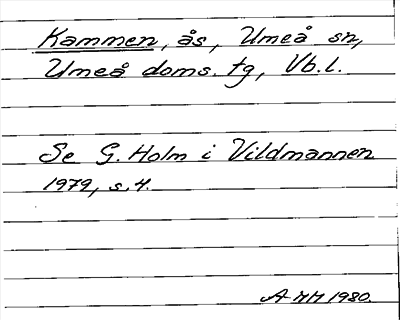 Kammen, ås, Umeå sn,
Umeå doms. tg, Vb.l.
Se G. Holm i Vildmannen
1979, s. 4.
A MM 1980.